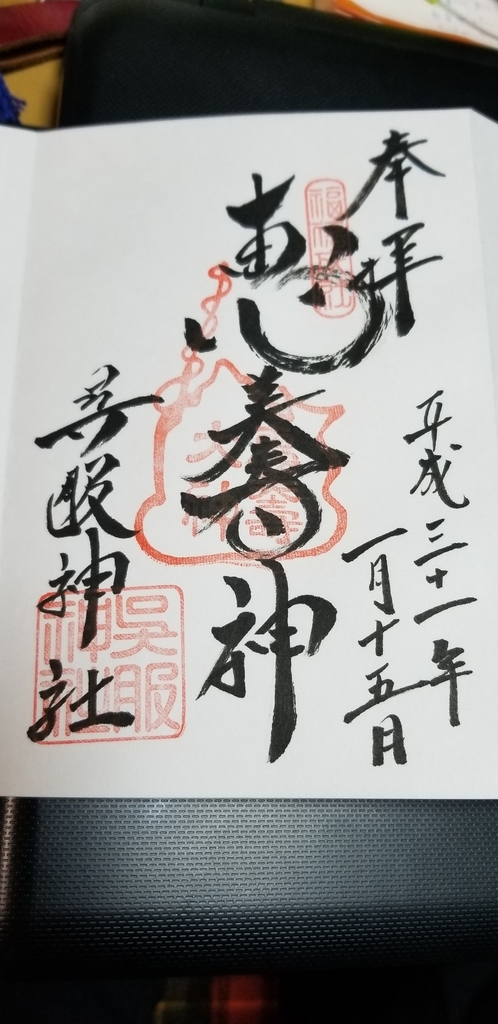 奉拝
平成三十一年
一月十五日
恵美壽神
呉服神社
吳服神社